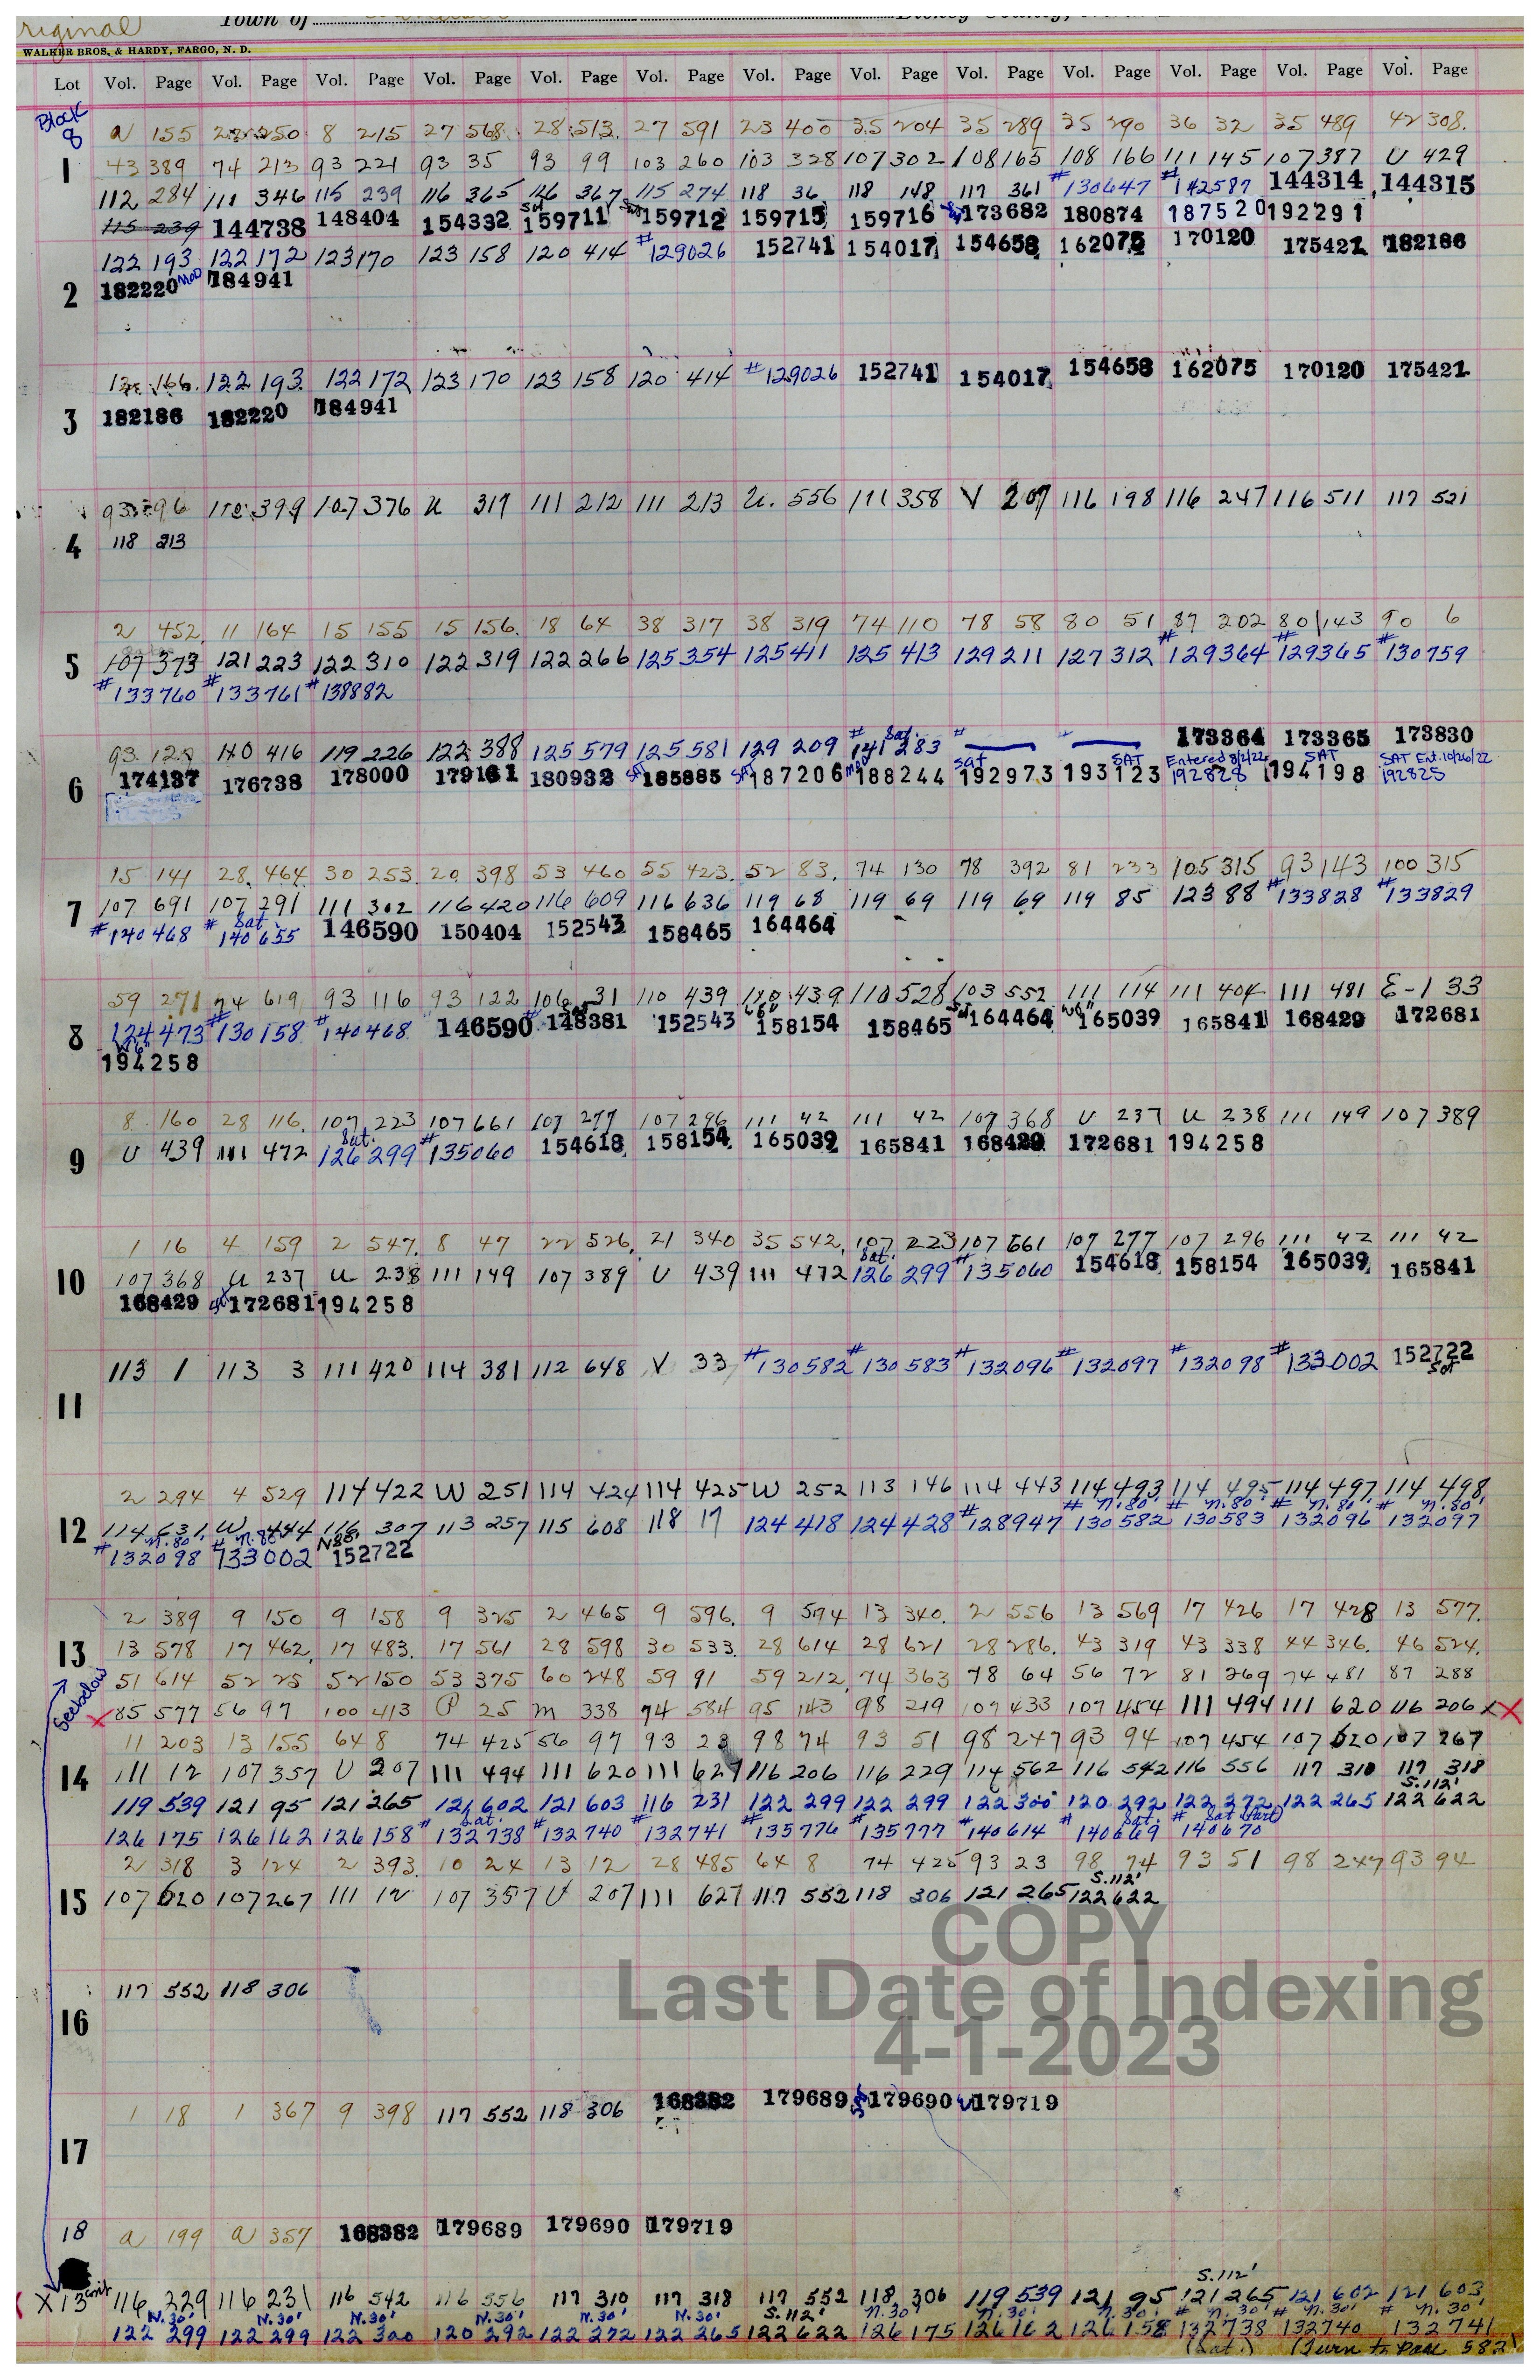 riginal Town of Dickey County,
WALKER BROS. & HARDY, FARGO, N. D.
Lot Vol. Page Vol. Page Vol. Page Vol. Page Vol. Page Vol. Page Vol. Page Vol. Page Vol. Page Vol. Page Vol. Page Vol. Page Vol. Page
Block
8
a 155 250 8 215 27 568 28 513 27 591 23 400 35 204 35 289 35 290 36 32 35 489 42 308
1 43 389 74 213 93 221 93 35 93 99 103 260 103 328 107 302 108 165 108 166 111 145 107 387 U 429
112 284 111 346 115 239 116 365 116 367 115 274 118 36 118 148 117 361 #130647 #142587 144314 144315
115 239 144738 148404 154332 Sat 159711 Sat 159712 159715 159716 173682 180874 187520 192291
122 193 122 172 123 170 123 158 120 414 #129026 152741 154017 154658 162075 170120 175421 182186
2 182220 MOD 184941
166 122 193 122 172 123 170 123 158 120 414 #129026 152741 154017 154658 162075 170120 175421
3 182186 182220 184941
93 396 399 107 376 U 317 111 212 111 213 U. 556 111 358 V 207 116 198 116 247 116 511 117 521
4 118 213
2 452 11 164 15 155 15 156 18 64 38 317 38 319 74 110 78 58 80 51 87 202 80 143 90 6
5 107 373 121 223 122 310 122 319 122 266 125 354 125 411 125 413 129 211 127 312 #129364 #129365 #130759
#133760 #133761 #138882
93 122 110 416 119 226 122 388 125 579 125 581 129 209 # Sat. 141 283 # # 173364 173365 173830
6 174137 176738 178000 179161 180932 SAT 185885 SAT 187206 MOD 188244 Sat 192973 SAT 193123 Entered 8/2/22 192828 SAT 194198 SAT Ent. 10/26/22 192825
15 141 28 464 30 253 20 398 53 460 55 423 52 83 74 130 78 392 81 233 105 315 93 143 100 315
7 107 691 107 291 111 302 116 420 116 609 116 636 119 68 119 69 119 69 119 85 123 88 #133828 #133829
#140468 # Sat 140655 146590 150404 152543 158465 164464
59 271 74 619 93 116 93 122 106 31 110 439 110 439 110 528 103 552 111 114 111 404 111 481 E-1 33
8 124 473 #130158 #140468 146590 # 148381 152543 W6" 158154 158465 Sat 164464 W6" 165039 165841 168429 172681
W6" 194258
8 160 28 116 107 223 107 661 107 277 107 296 111 42 111 42 107 368 U 237 U 238 111 149 107 389
9 U 439 111 472 Sat. 126 299 #135060 154618 158154 165039 165841 168429 172681 194258
1 16 4 159 2 547 8 47 22 526 21 340 35 542 107 223 107 661 107 277 107 296 111 42 111 42
10 107 368 U 237 U 238 111 149 107 389 U 439 111 472 Sat. 126 299 #135060 154618 158154 165039 165841
168429 172681 194258
113 1 113 3 111 420 114 381 112 648 V 33 #130582 #130583 #132096 #132097 #132098 #133002 152722 Sat
11
2 294 4 529 114 422 W 251 114 424 114 425 W 252 113 146 114 443 114 493 114 495 114 497 114 498
12 114 631 W 444 N80' 116 307 113 257 115 608 118 17 124 418 124 428 #128947 # N.80' 130582 # N.80' 130583 # N.80' 132096 # N.80' 132097
# N.80' 132098 # N.80' 133002 N80' 152722
2 389 9 150 9 158 9 325 2 465 9 596 9 594 13 340 2 556 13 569 17 426 17 428 13 577
13 13 578 17 462 17 483 17 561 28 598 30 533 28 614 28 621 28 286 43 319 43 338 44 346 46 524
51 614 52 25 52 150 53 375 60 248 59 91 59 212 74 363 78 64 56 72 81 269 74 481 87 288
See below X 85 577 56 97 100 413 P 25 M 338 74 584 95 143 98 219 107 433 107 454 111 494 111 620 116 206 X X
11 203 13 155 64 8 74 425 56 97 93 23 98 74 93 51 98 247 93 94 107 454 107 620 107 267
14 111 12 107 357 U 207 111 494 111 620 111 627 116 206 116 229 114 562 116 542 116 556 117 310 117 318
119 539 121 95 121 265 121 602 121 603 116 231 122 299 122 299 122 300 120 292 122 272 122 265 S.112' 122 622
126 175 126 162 126 158 # Sat. 132738 #132740 #132741 #135776 #135777 #140614 # Sat. 140669 # Sat 140670
2 318 3 124 2 393 10 24 13 12 28 485 64 8 74 425 93 23 98 74 93 51 98 247 93 94
15 107 620 107 267 111 12 107 357 U 207 111 627 117 552 118 306 121 265 S.112' 122 622
COPY
Last Date of Indexing
4-1-2023
117 552 118 306
16
1 18 1 367 9 398 117 552 118 306 168382 179689 179690 179719
17
18 a 199 a 357 168382 179689 179690 179719
X 13 cont 116 229 116 231 116 542 116 556 117 310 117 318 117 552 118 306 119 539 121 95 S.112' 121 265 121 602 121 603
N.30' 122 299 N.30' 122 299 N.30' 122 300 N.30' 120 292 N.30' 122 272 N.30' 122 265 S.112' 122 622 N.30' 126 175 N.30' 126 162 N.30' 126 158 # N.30' 132738 # N.30' 132740 # N.30' 132741
(Sat.) (Turn to page 582)